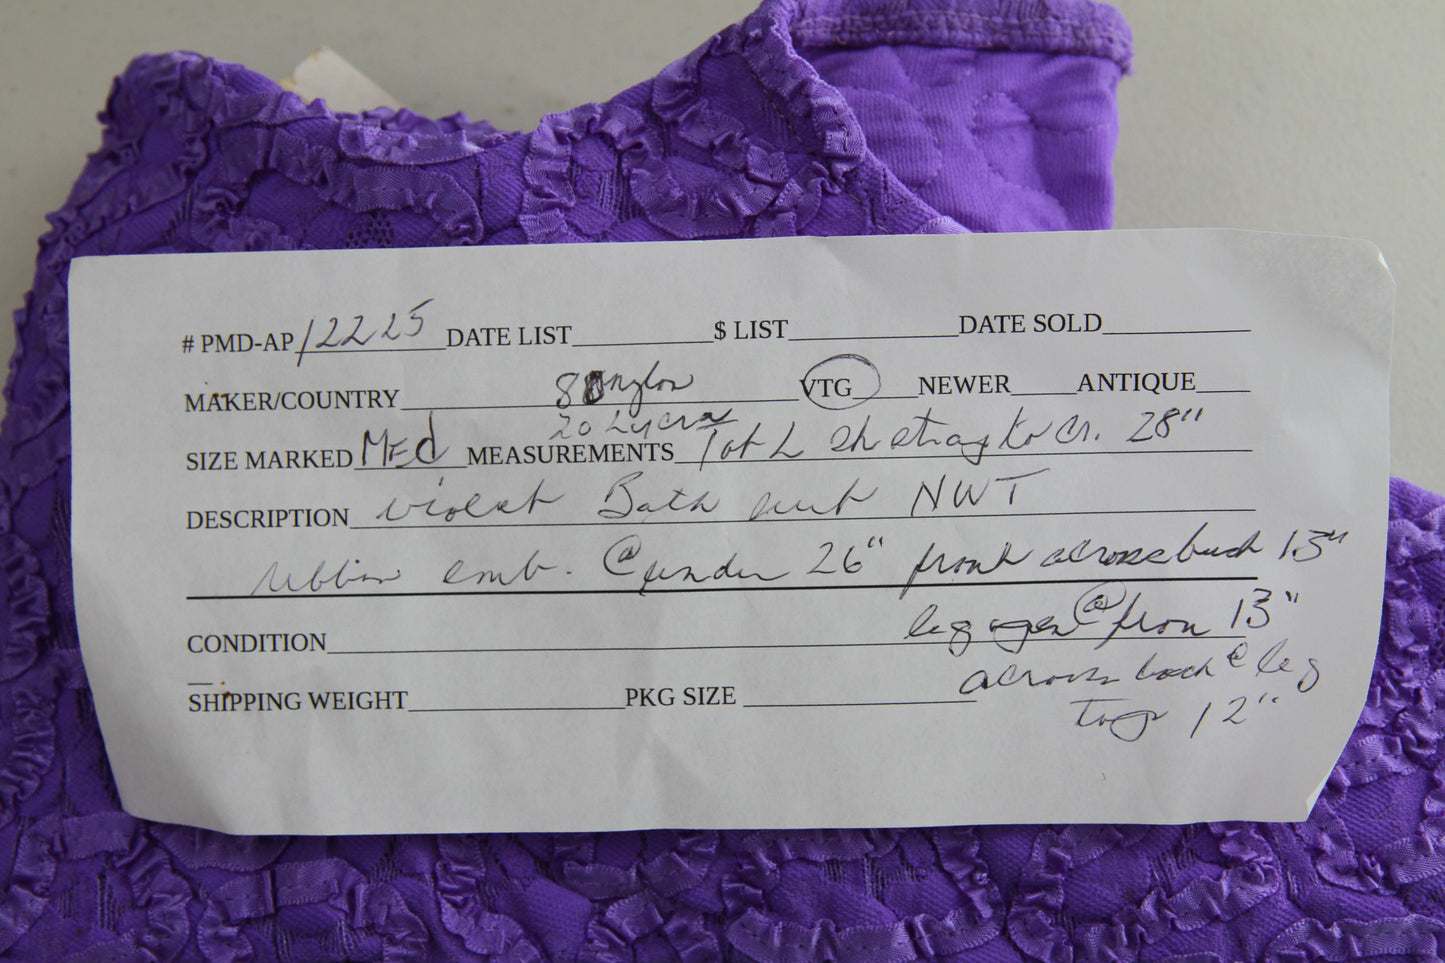 # PMD-AP 12225 DATE LIST $ LIST DATE SOLD
MAKER/COUNTRY 80 nylon VTG NEWER ANTIQUE
20 Lycra
SIZE MARKED MEd MEASUREMENTS Tot L sh strap to cr. 28"
DESCRIPTION violet Bath suit NWT
ribbon emb. @ under 26" front across bust 15"
CONDITION leg open @ from 13"
across back @ leg
SHIPPING WEIGHT PKG SIZE
top 12"